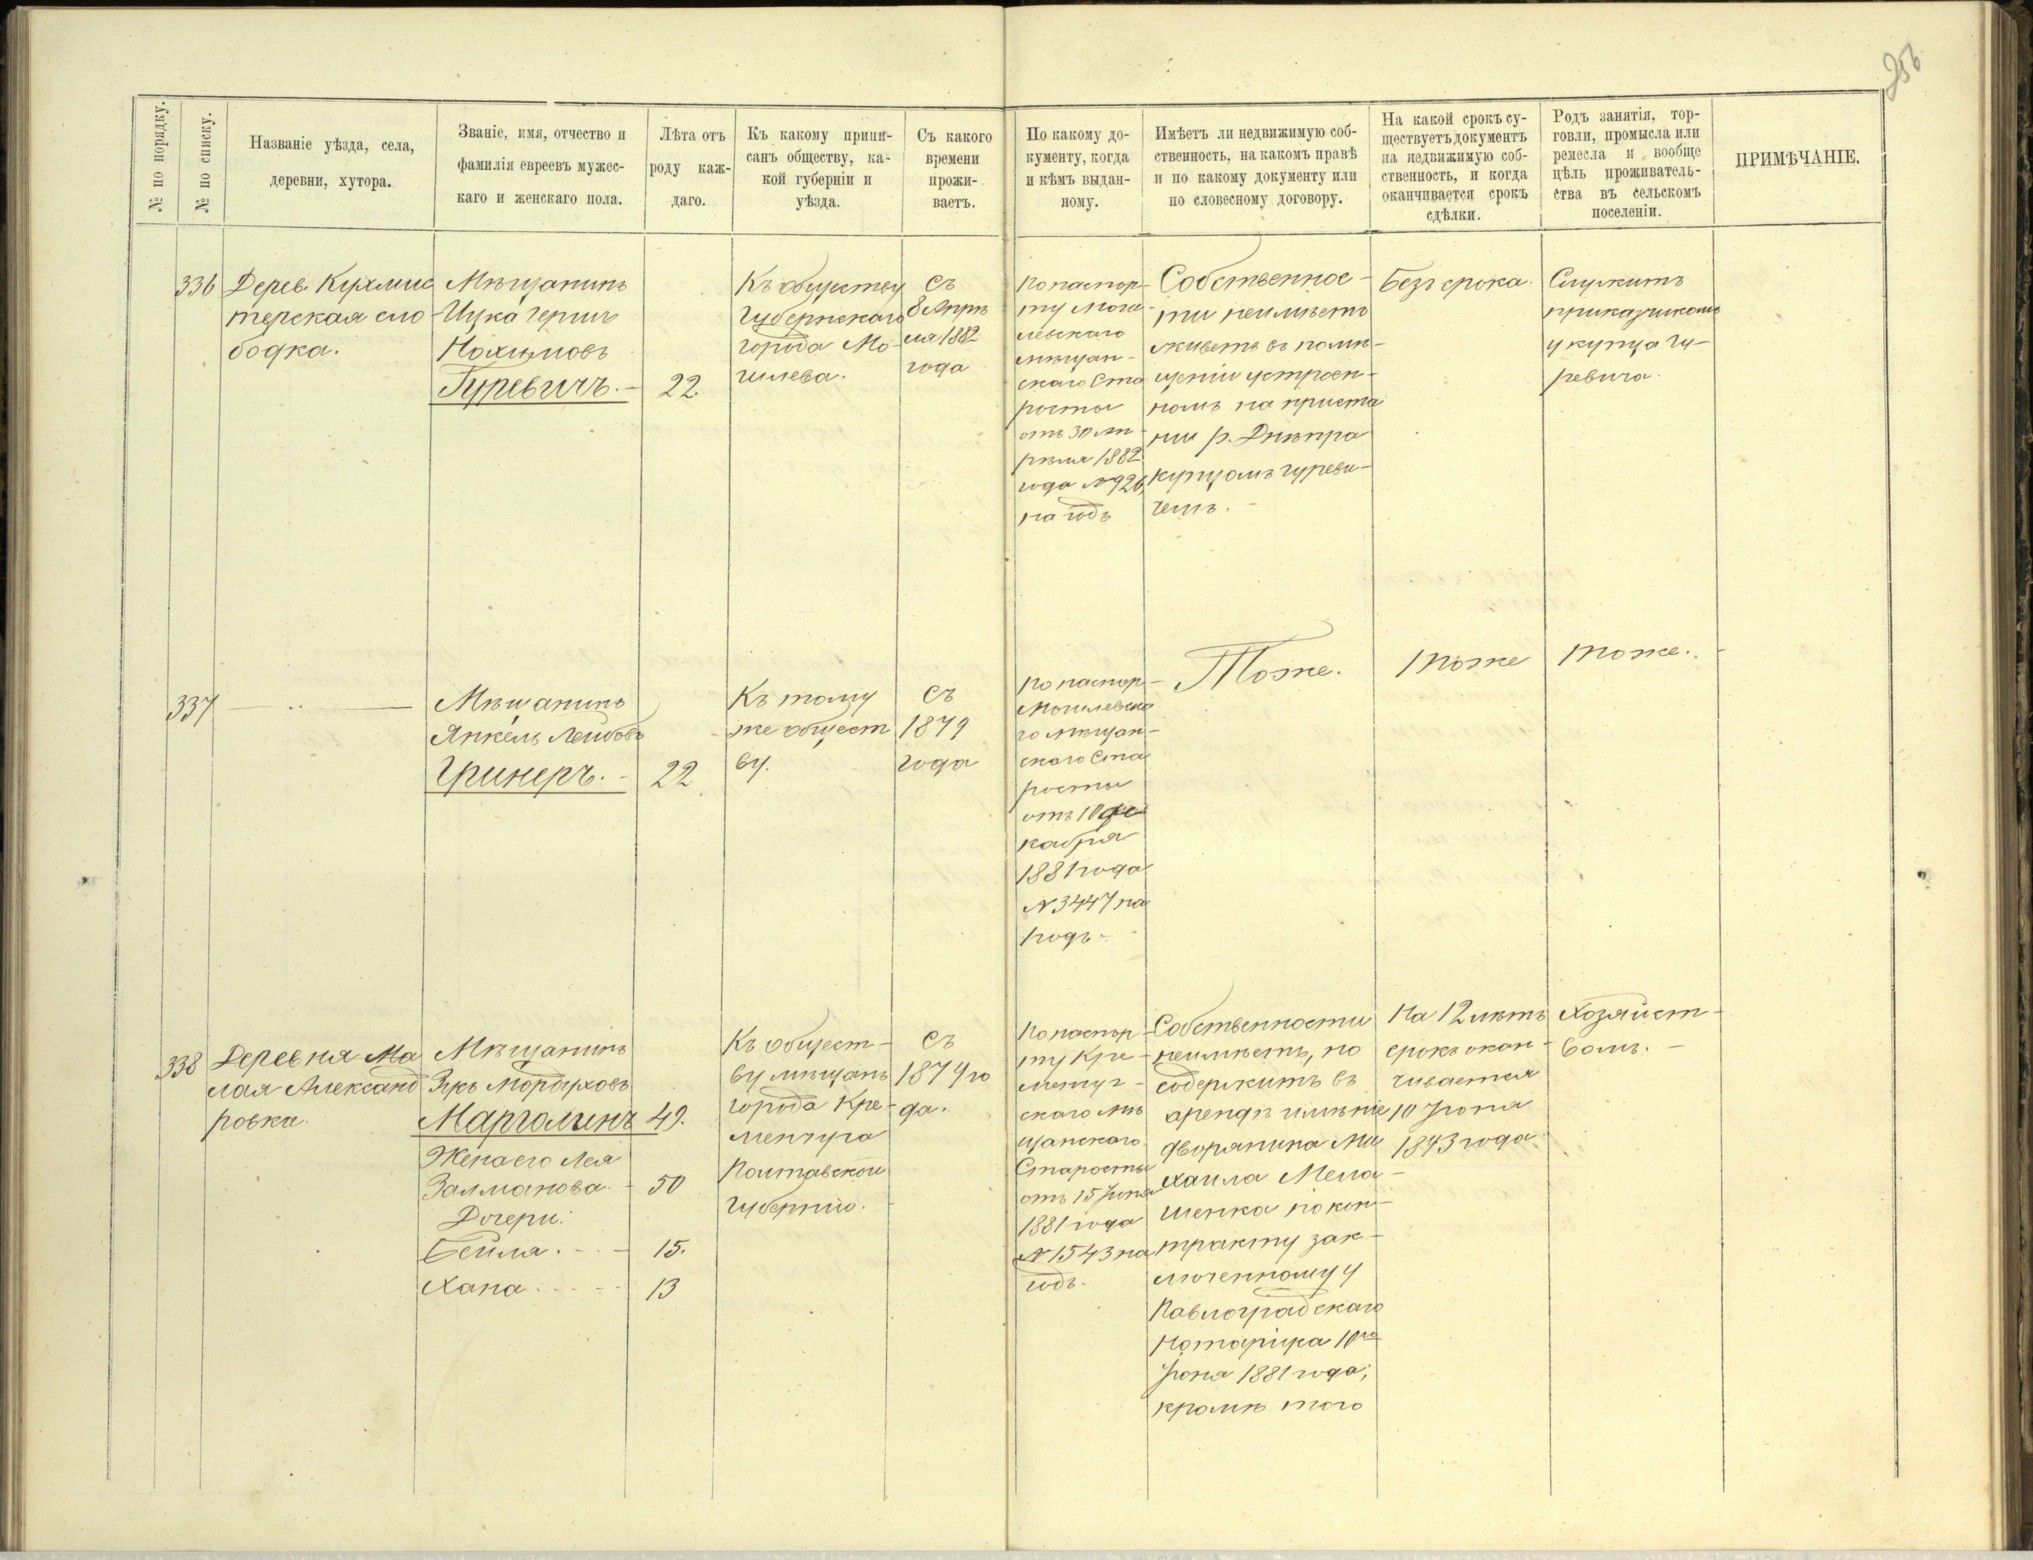 256
№ по порядку.
№ по списку.
Названіе уѣзда, села,
деревни, хутора.
Званіе, имя, отчество и
фамилія евреевъ мужес-
каго и женскаго пола.
Лѣта отъ
роду каж-
даго.
Къ какому припи-
санъ обществу, ка-
кой губерніи и
уѣзда.
Съ какого
времени
прожи-
ваетъ.
По какому до-
кументу, когда
и кѣмъ выдан-
ному.
Имѣетъ ли недвижимую соб-
ственность, на какомъ правѣ
и по какому документу или
по словесному договору.
На какой срокъ су-
ществуетъ документъ
на недвижимую соб-
ственность, и когда
оканчивается срокъ
сдѣлки.
Родъ занятія, тор-
говли, промысла или
ремесла и вообще
цѣль проживатель-
ства въ сельскомъ
поселеніи.
ПРИМѢЧАНІЕ.
336
Дерев. Кухмис
терская сло
бодка.
Мѣщанинъ
Ицка Герша
Нохимовъ
Гуревичъ. -
22.
Къ обществу
Губернскаго
города Мо-
гилева.
Съ
8 Апрѣ
ля 1882
года
По паспор-
ту Моги-
левскаго
мѣщан-
скаго Ста
росты
отъ 30 Ап
рѣля 1882
года №926
на годъ
Собственнос-
ти неимѣетъ
живетъ въ помѣ-
щеніи устроен-
номъ на приста
ни р. Днѣпра
купцомъ Гуреви-
чемъ. -
Безъ срока.
Служитъ
приказчикомъ
у купца Гу-
ревича.
337
— „ —
Мѣщанинъ
Янкель Лейбовъ
Гринеръ. -
22.
Къ тому
же общест
ву.
Съ
1879
года
По паспор-
Могилевска
го Мѣщан-
скаго Ста
росты
отъ 10 де
кабря
1881 года
№3447 на
годъ -
Тоже.
тоже
тоже.
338
Деревня Ма
лая Александ
ровка.
Мѣщанинъ
Зусь Мордуховъ
Марголинъ
49.
Жена его Лея
Залманова. -
50
Дочери:
Бейля. - -
15.
Хана. - - -
13
Къ общест-
ву мѣщанъ
города Кре-
менчуга
Полтавской
Губерніи. -
Съ
1879 го
да.
По паспор-
ту Кре-
менчуг-
скаго мѣ
щанскаго
Старосты
отъ 15 Іюня
1881 года
№1543 на
годъ.
Собственности
неимѣетъ, но
содержитъ въ
арендѣ имѣніе
дворянина Ми
хаила Мела-
шенка по кон-
тракту зак-
люченному у
Павлоградскаго
Нотаріуса 10го
Іюня 1881 года;
кромѣ того
На 12 лѣтъ
срокъ окан-
чивается
10 Іюня
1893 года.
Хозяйст-
вомъ. -